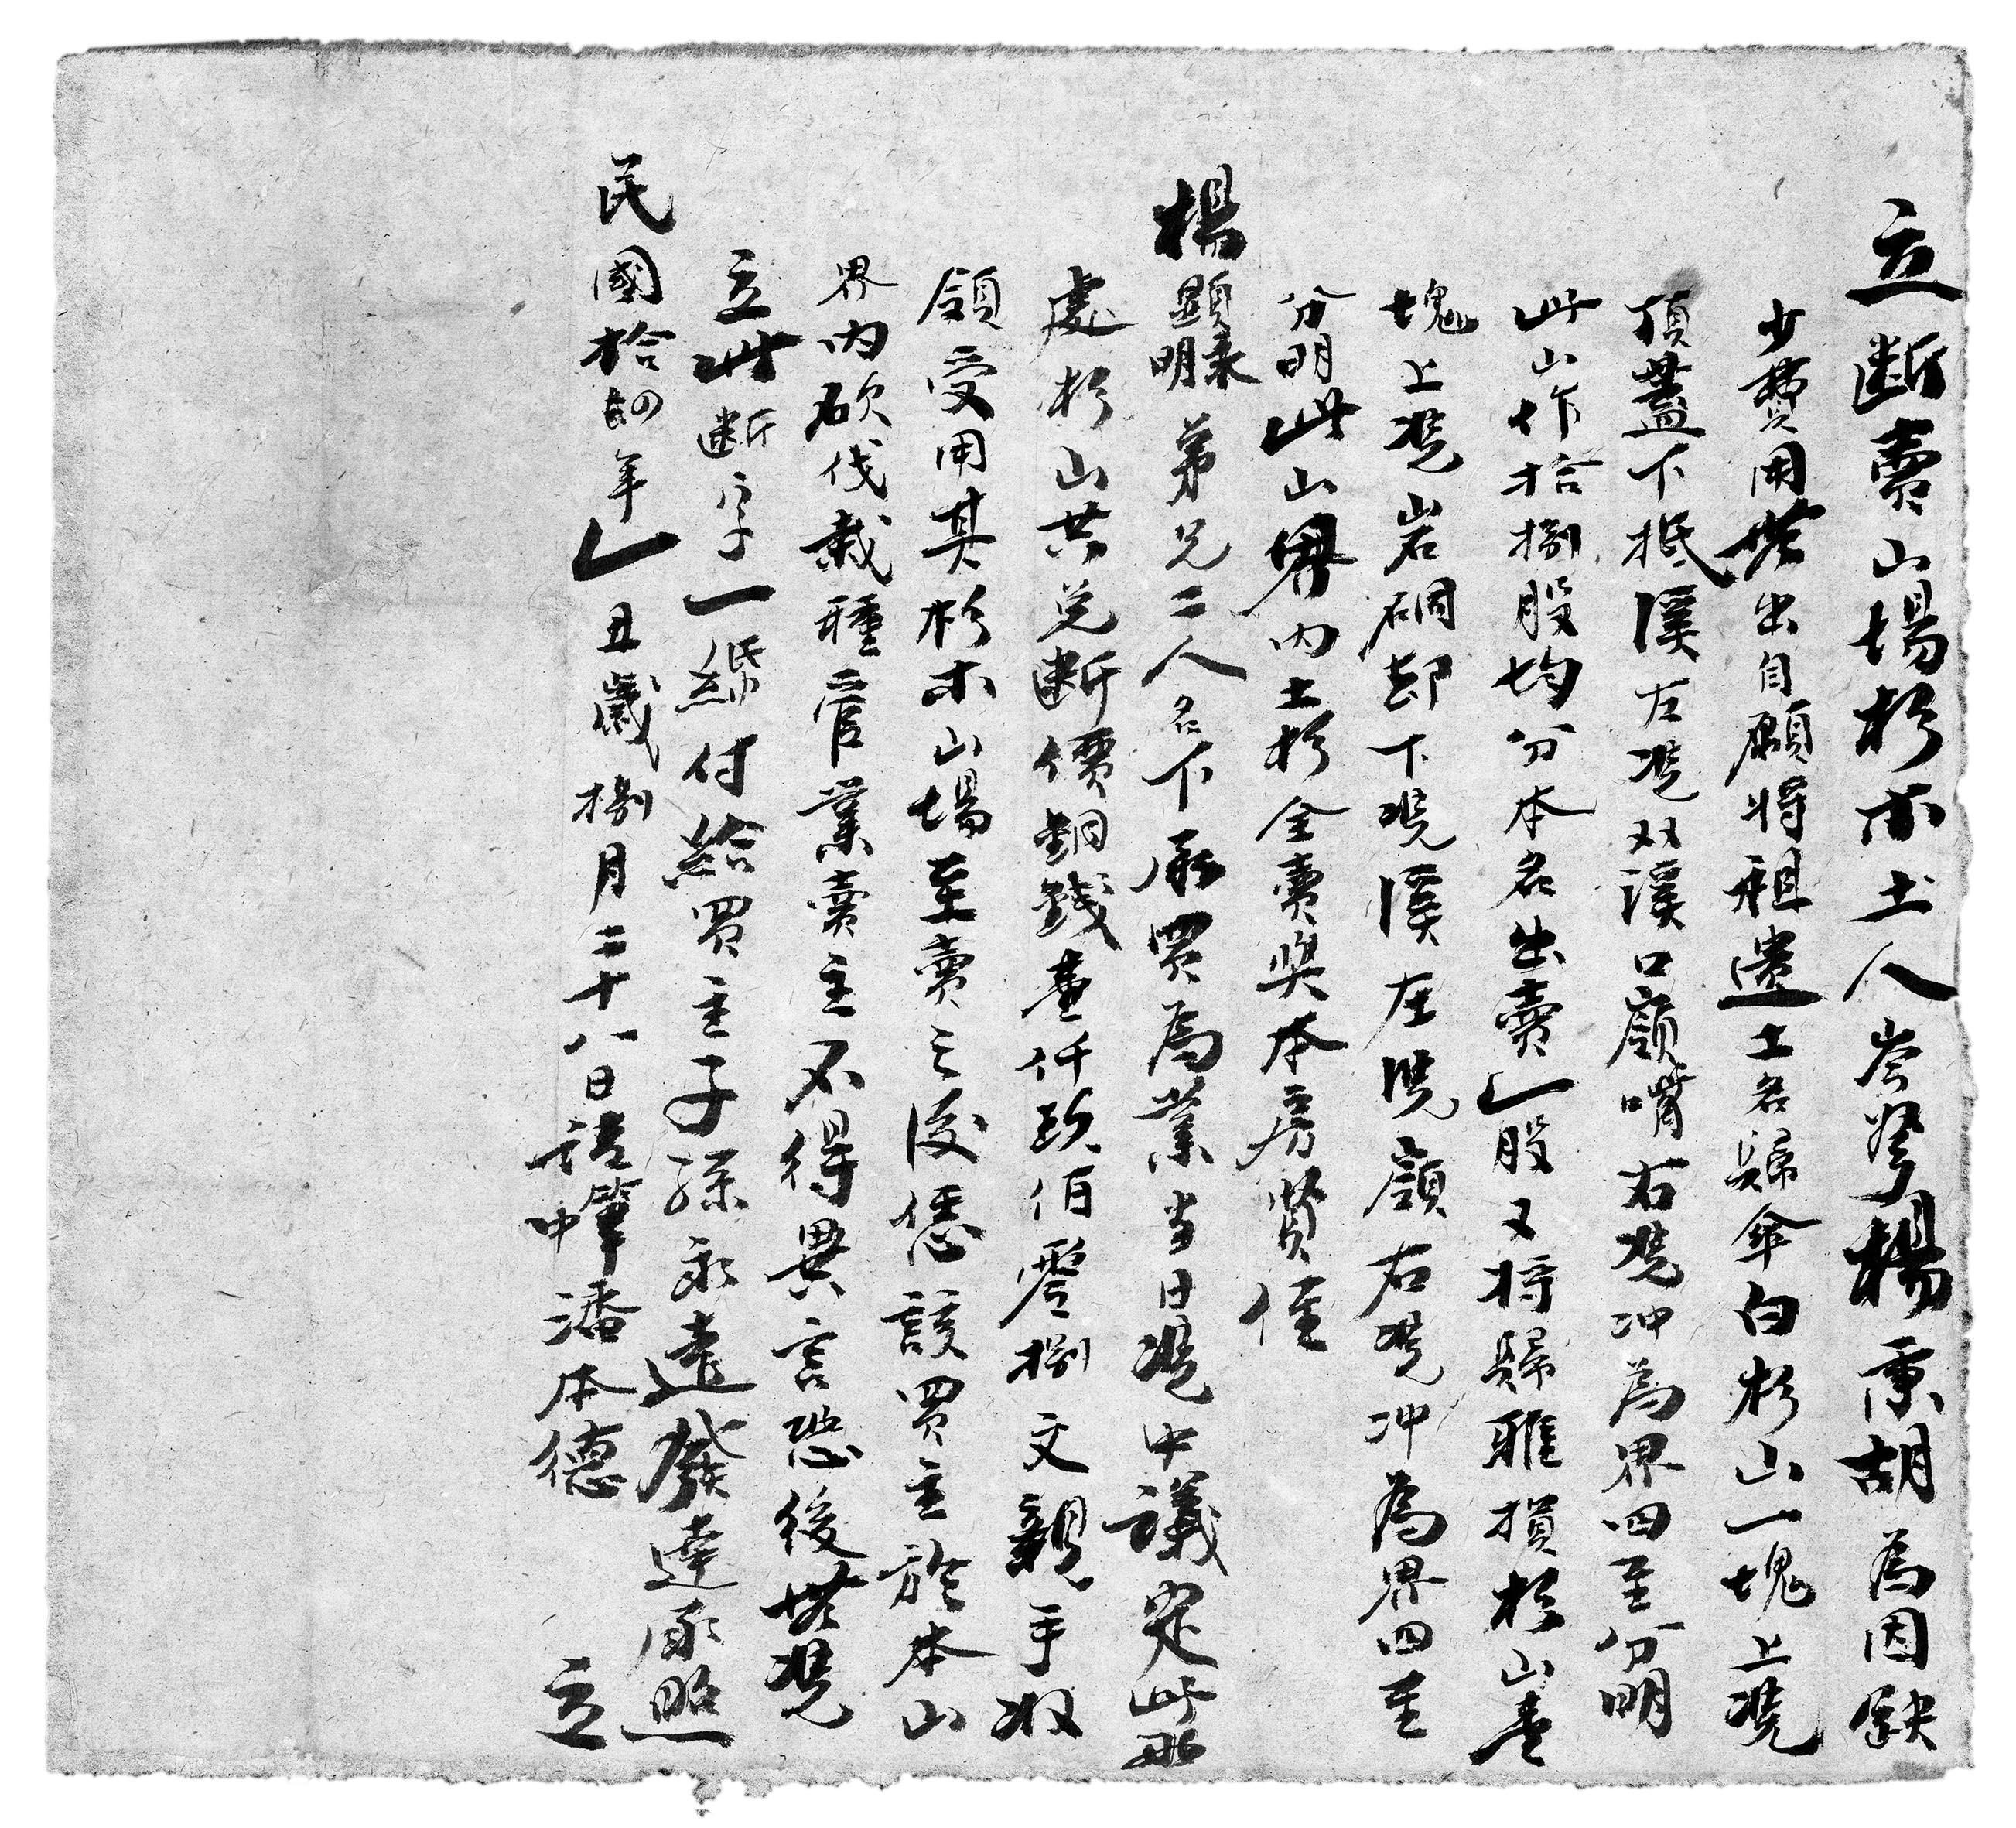 立断賣山場杉木土人岑孥楊秉胡為因缺
少費用無出自願將祖遺土名歸傘白杉山一塊上凴
頂蓋下抵溪左凴双溪口嶺嘴右凴冲為界四至分明
此山作拾捌股均分本名出賣乙股又将歸雅損杉山壹
塊上凴岩硐却下凴溪左凴嶺右凴冲為界四至
分明此山界内土杉全賣與本房賢侄
楊顕明彔弟兄二人名下承買為業当日凴中議定此弍
處杉山共兑断價銅錢壹仟玖伯零捌文親手收
領受用其杉木山場至賣之後恁該買主於本山
界内砍伐栽種管業賣主不得異言恐後無凴
立此断字一紙付給買主子孫永遠發達承照
民國拾四年乙丑歲捌月二十八日請筆中潘本德 立